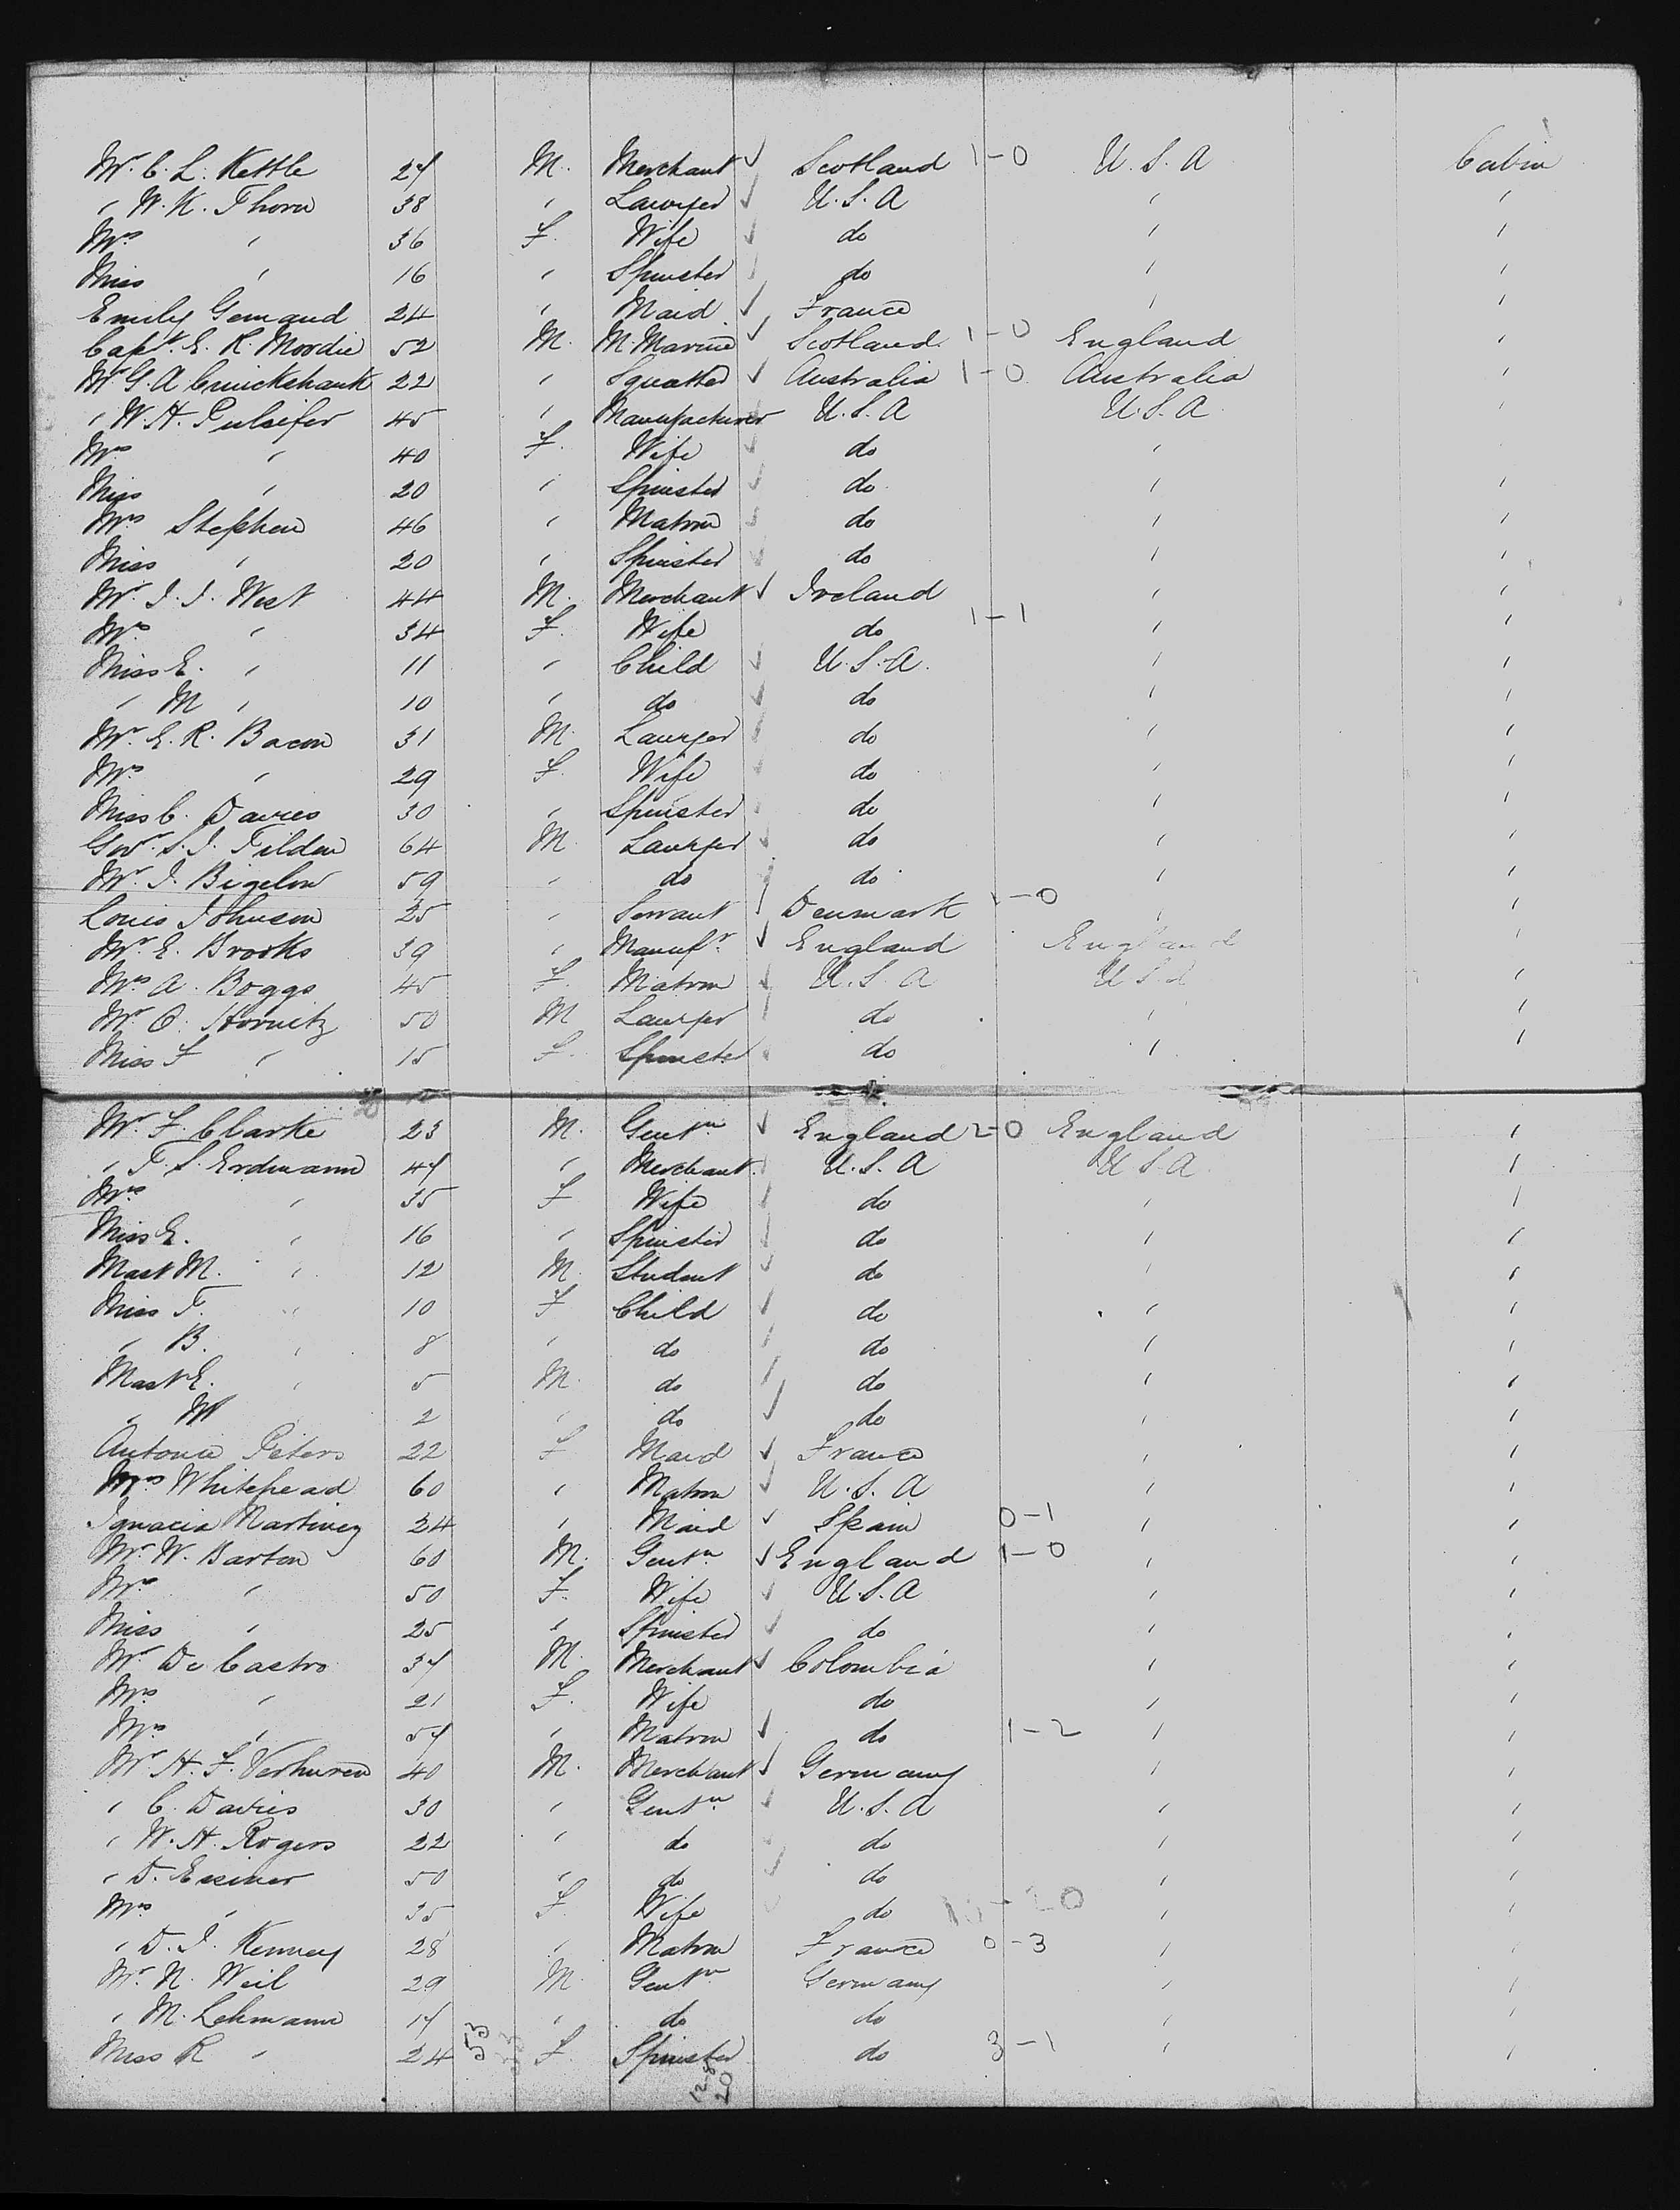 Mr. C. L. Kettle 27 M. Merchant ✓ Scotland 1-0 U.S.A Cabin
" W. K. Thorn 38 " Lawyer ✓ U.S.A " "
Mrs " 36 F. Wife ✓ do " "
Miss " 16 " Spinster ✓ do " "
Emily 24 " Maid ✓ France " "
Capt. E. R. Moodie 52 M. M. Marine ✓ Scotland 1-0 England "
Mr G. A Cruickshank 22 " Squatter ✓ Australia 1-0 Australia "
" W. H. Pulsifer 45 " Manufacturer U.S.A U.S.A "
Mrs " 40 F. Wife ✓ do " "
Miss " 20 " Spinster ✓ do " "
Mrs Stephen 46 " Matron ✓ do " "
Miss " 20 " Spinster ✓ do " "
Mr. J. J. West 44 M. Merchant ✓ Ireland " "
Mrs " 34 F. Wife do 1-1 " "
Miss E. " 11 " Child ✓ U.S.A. " "
" M " 10 " do ✓ do " "
Mr. E. R. Bacon 31 M. Lawyer ✓ do " "
Mrs " 29 F. Wife ✓ do " "
Miss C. Davies 30 " Spinster ✓ do " "
Gov. S. J. Tilden 64 M. Lawyer ✓ do " "
Mr. J. Bigelow 59 " do ✓ do " "
Louis Johnson 25 " Servant ✓ Denmark 1-0 " "
Mr. E. Brooks 39 " Manufr. ✓ England England "
Mrs A. Boggs 45 F. Matron ✓ U.S.A U.S.A "
Mr. O. 50 M Lawyer ✓ do " "
Miss F " 15 F. Spinster ✓ do " "
Mr. F. Clarke 23 M. Gentn ✓ England 2-0 England "
" T. S. Erdmann 47 " Merchant ✓ U.S.A U.S.A "
Mrs " 35 F Wife ✓ do " "
Miss E. " 16 " Spinster ✓ do " "
Mast M. " 12 M. Student ✓ do " "
Miss T. " 10 F Child ✓ do " "
" B. " 8 " do ✓ do " "
Mast E. " 5 M. do ✓ do " "
" M 2 " do ✓ do " "
Antonia Peters 22 F Maid ✓ France " "
Mrs Whitehead 60 " Matron ✓ U.S.A " "
Ignacia Martinez 24 " Maid ✓ Spain 0-1 " "
Mr. W. Barton 60 M. Gentn ✓ England 1-0 " "
Mrs " 50 F. Wife ✓ U.S.A " "
Miss " 25 " Spinster ✓ do " "
Mr. De Castro 37 M. Merchant ✓ Colombia " "
Mrs " 21 F. Wife do " "
Mrs " 57 " Matron ✓ do 1-2 " "
Mr H. F. 40 M. Merchant ✓ Germany " "
" C. Davies 30 " Gentn ✓ U.S.A " "
" W. H. Rogers 22 " do ✓ do " "
" D. 50 " do ✓ do " "
Mrs " 35 F. Wife do " "
" D. J. Kenney 28 " Matron France 0-3 " "
Mr. N. Weil 29 M. Gentn Germany " "
" M. Lehmann 17 " do do " "
Miss R " 24 53 F. Spinster do 3-1 " "
20